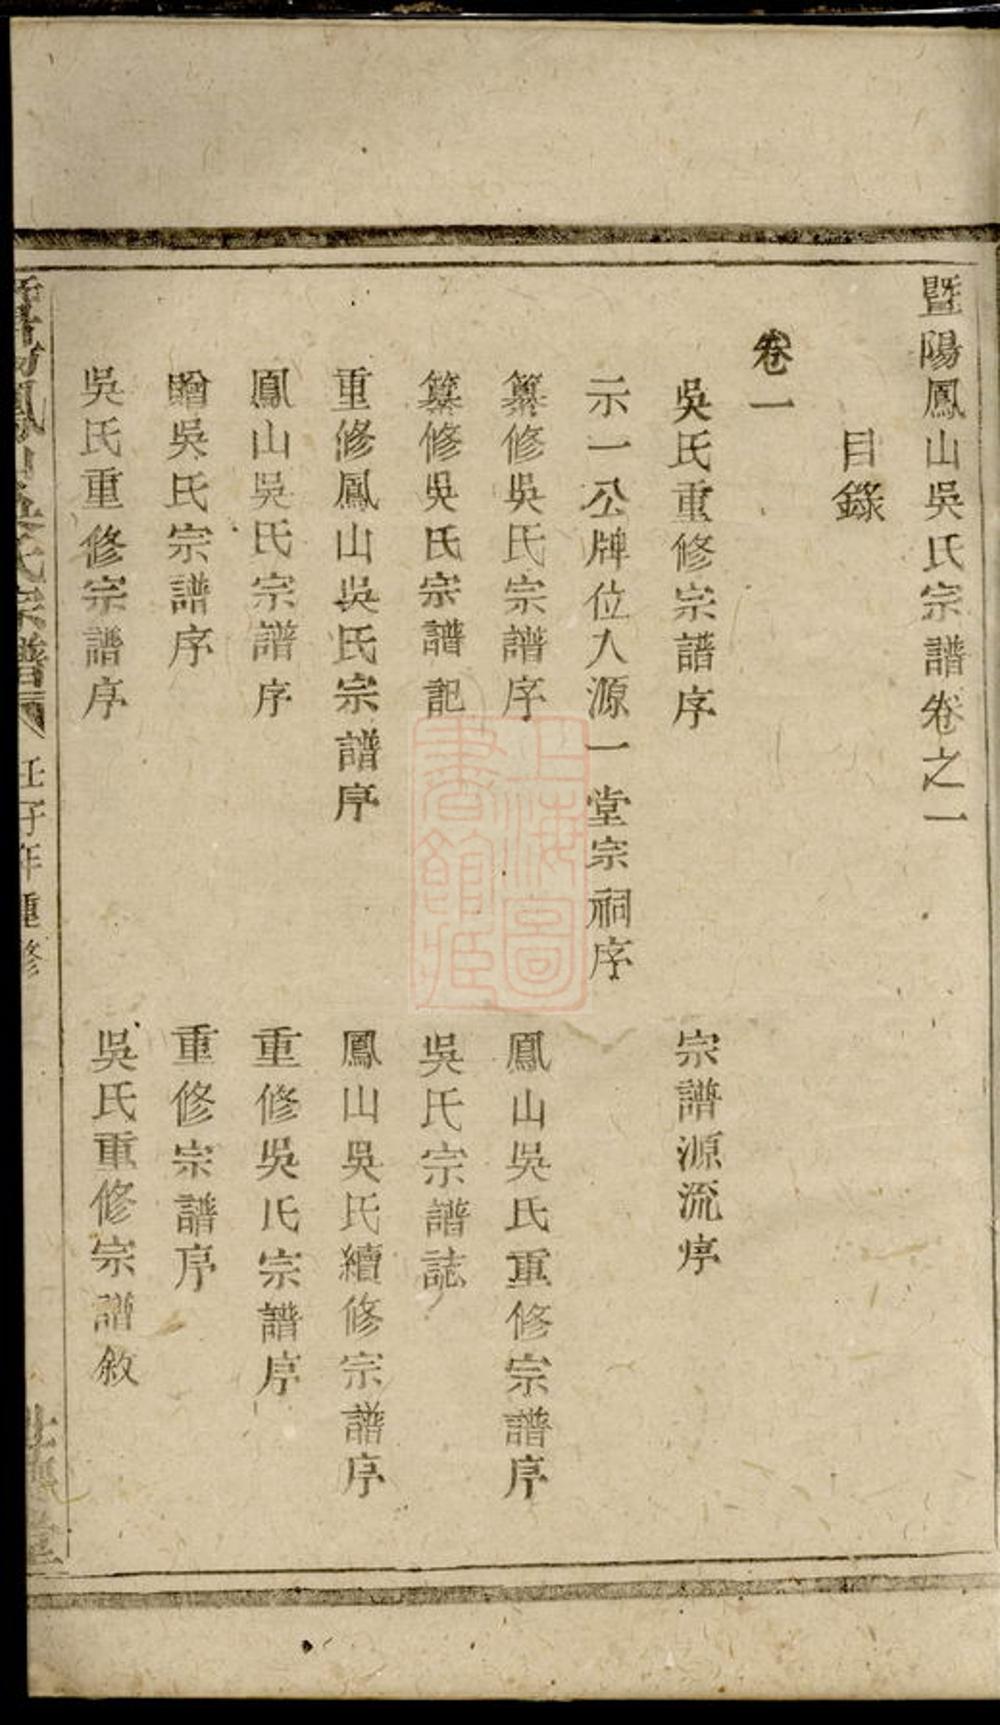 暨陽鳳山吳氏宗譜卷之一
目錄
卷一
吳氏重修宗譜序
宗譜源流序
示一公牌位入源一堂宗祠序
纂修吳氏宗譜序
鳳山吳氏重修宗譜序
纂修吳氏宗譜記
吳氏宗譜誌
重修鳳山吳氏宗譜序
鳳山吳氏續修宗譜序
鳳山吳氏宗譜序
重修吳氏宗譜序
贈吳氏宗譜序
重修宗譜序
吳氏重修宗譜序
吳氏重修宗譜敘
暨陽鳳山吳氏宗譜
壬子年重修
堂
上海圖書館藏